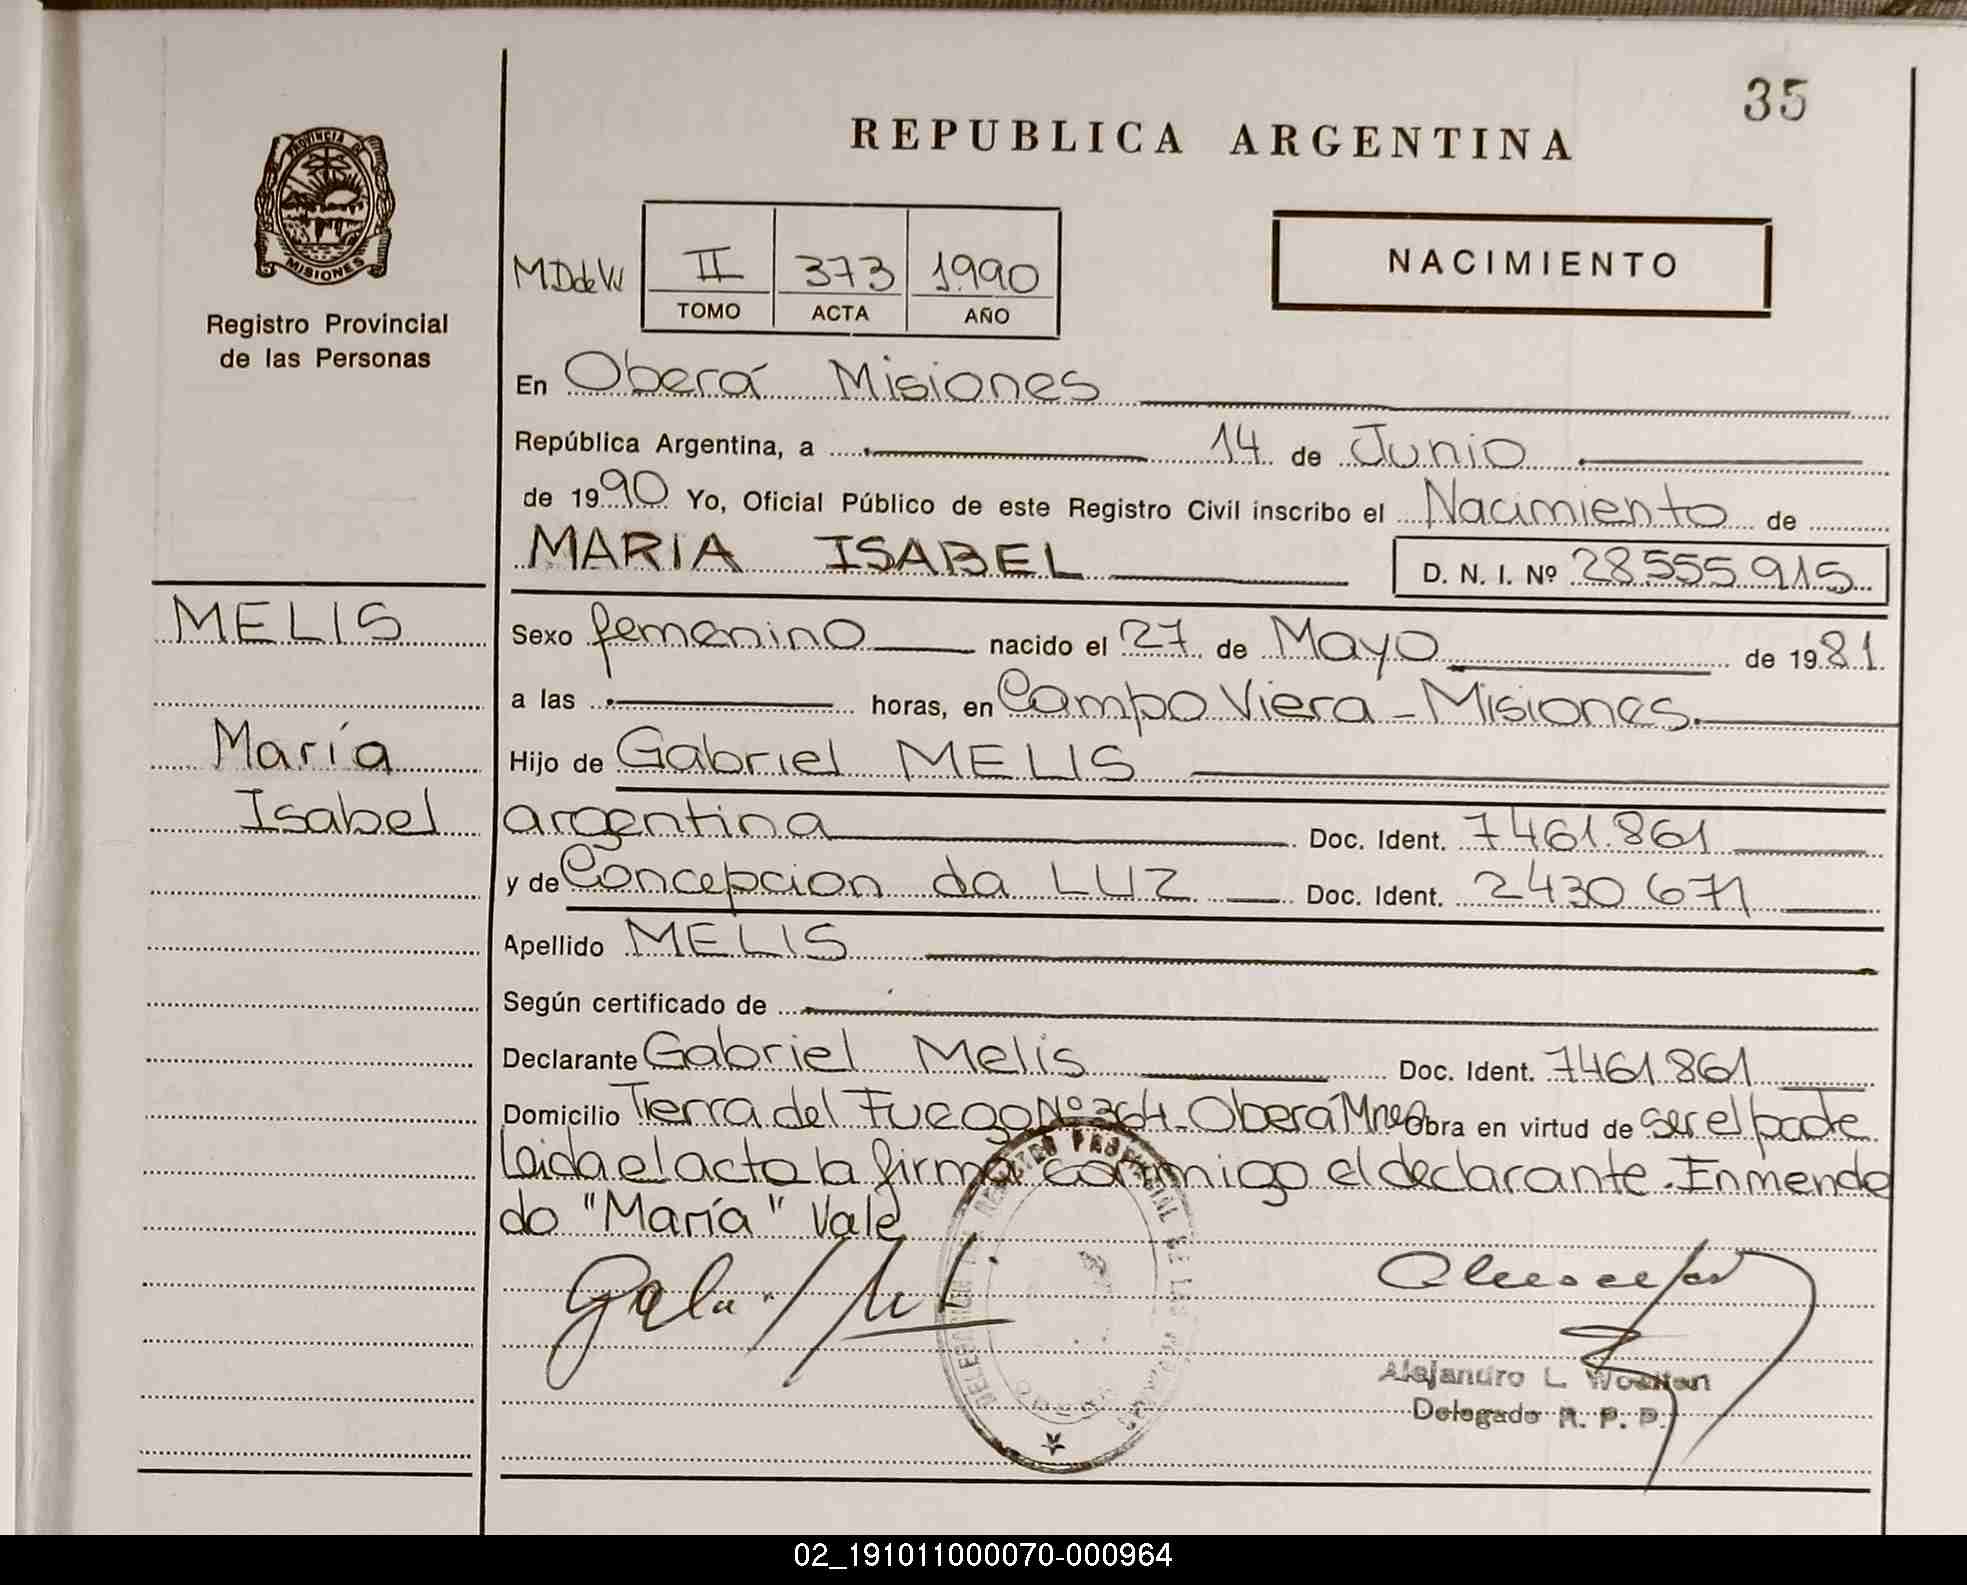 35
REPUBLICA ARGENTINA
PROVINCIA DE
MISIONES
Registro Provincial
de las Personas
MDdeW II 373 1990
TOMO ACTA AÑO
NACIMIENTO
En Oberá Misiones
República Argentina, a 14 de Junio
de 1990 Yo, Oficial Público de este Registro Civil inscribo el Nacimiento de
MARIA ISABEL D. N. I. Nº 28555915
MELIS
María
Isabel
Sexo femenino nacido el 27 de Mayo de 1981
a las horas, en Campo Viera - Misiones.
Hijo de Gabriel MELIS
argentina Doc. Ident. 7461.861
y de Concepcion da LUZ Doc. Ident. 2430671
Apellido MELIS
Según certificado de
Declarante Gabriel Melis Doc. Ident. 7461861
Domicilio Tierra del Fuego Nº 364- Oberá Mnes Obra en virtud de ser el padre
Leida el acta la firma conmigo el declarante. Enmenda
do "María" Vale
Alejandro L.
Delegado R. P. P.
02_191011000070-000964